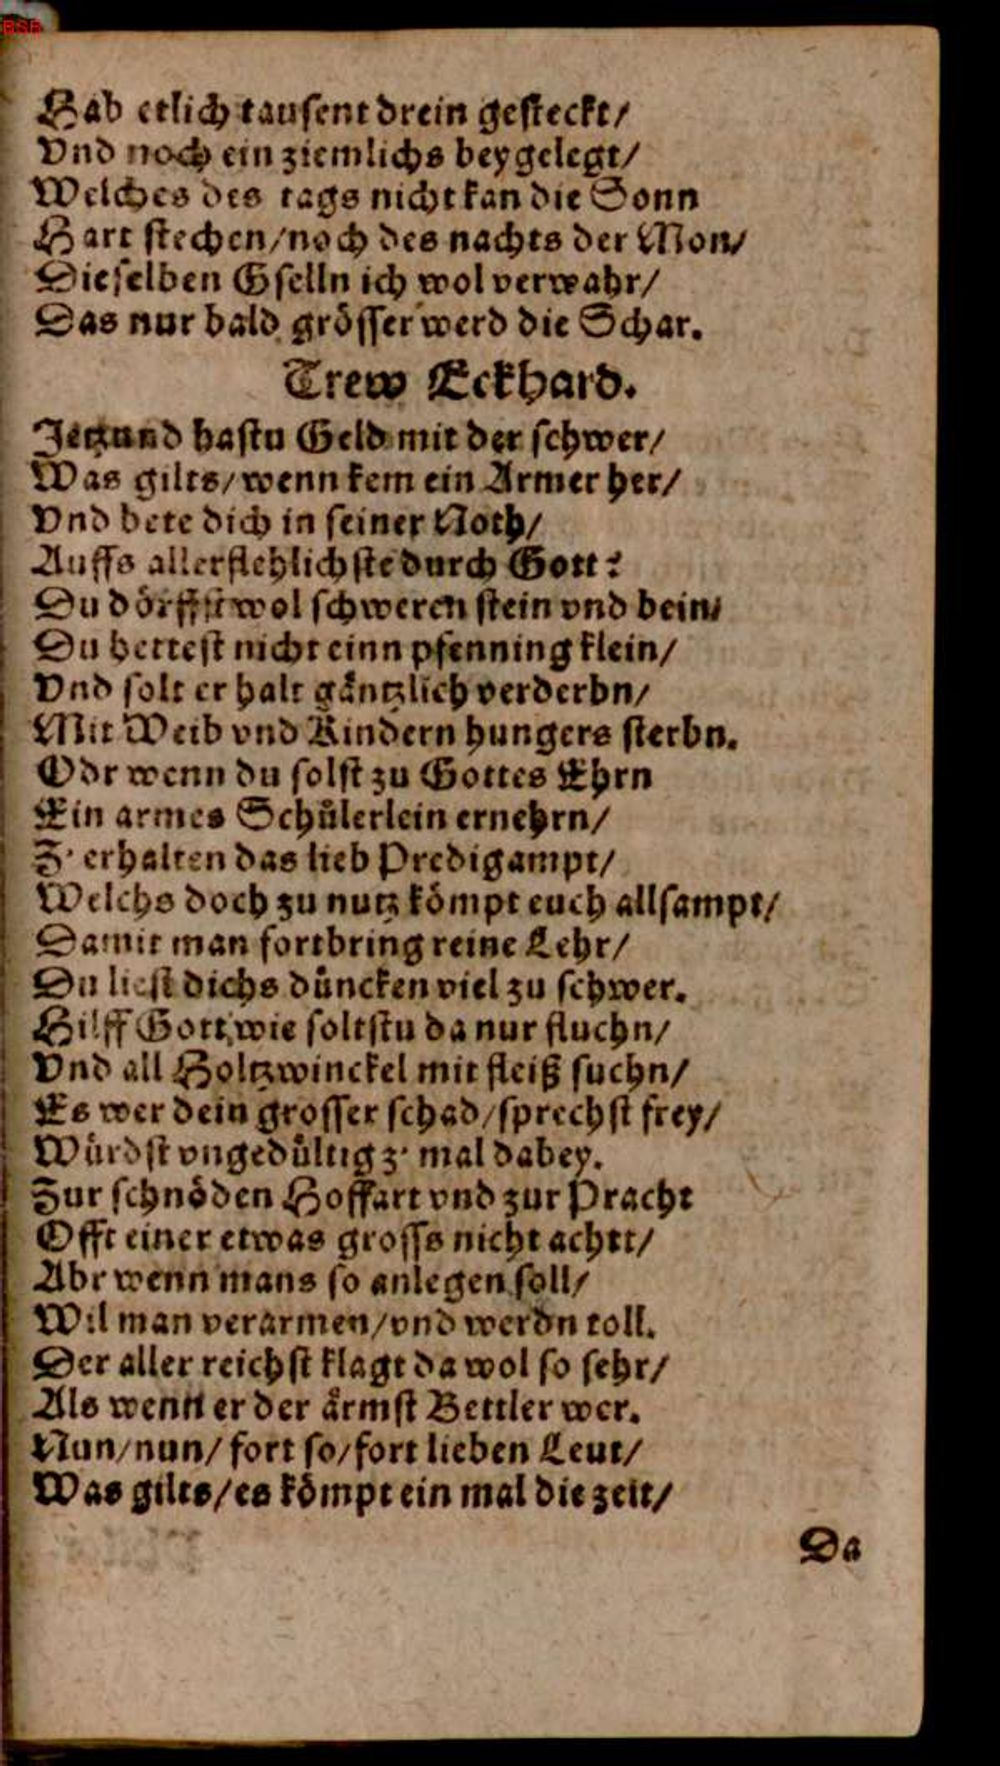 BSB
Hab etlich tausent drein gesteckt/
Vnd noch ein ziemlichs beygelegt/
Welches des tags nicht kan die Sonn
Hart stechen/noch des nachts der Mon/
Dieselben Gselln ich wol verwahr/
Das nur bald grösser werd die Schar.
Trew Eckhard.
Jetzund hastu Geld mit der schwer/
Was gilts/wenn kem ein Armer her/
Vnd bete dich in seiner Noth/
Auffs allerflehlichste durch Gott?
Du dörffst wol schweren stein vnd bein/
Du hettest nicht einn pfenning klein/
Vnd solt er halt gäntzlich verderbn/
Mit Weib vnd Kindern hungers sterbn.
Odr wenn du solst zu Gottes Ehrn
Ein armes Schülerlein ernehrn/
Z' erhalten das lieb Predigampt/
Welchs doch zu nutz kömpt euch allsampt/
Damit man fortbring reine Lehr/
Du liest dichs düncken viel zu schwer.
Hilff Gott, wie soltstu da nur fluchn/
Vnd all Holtzwinckel mit fleiß suchn/
Es wer dein grosser schad/sprechst frey/
Würdst vngedültig z' mal dabey.
Zur schnöden Hoffart vnd zur Pracht
Offt einer etwas gross nicht achtt/
Abr wenn mans so anlegen soll/
Wil man verarmen/vnd werdn toll.
Der aller reichst klagt da wol so sehr/
Als wenn er der ärmst Bettler wer.
Nun/nun/fort so/fort lieben Leut/
Was gilts/es kömpt ein mal die zeit/
Da